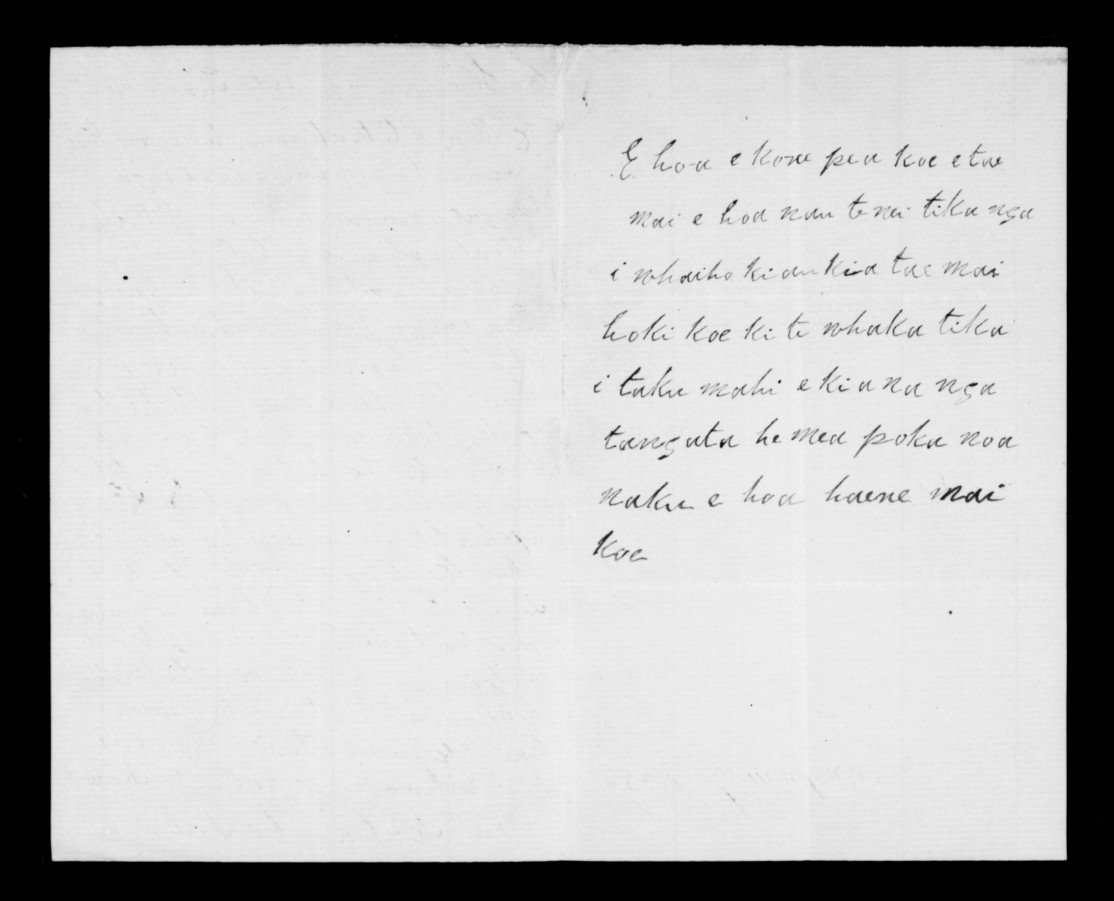 E hoa e kore pea koe e tae
mai e hoa nau te nei tika nga
i whaiho ki au kia tae mai
hoki koe ki te whaka tika
i taku mahi e ki a na nga
tangata he mea poka noa
naku e hoa haere mai
koe